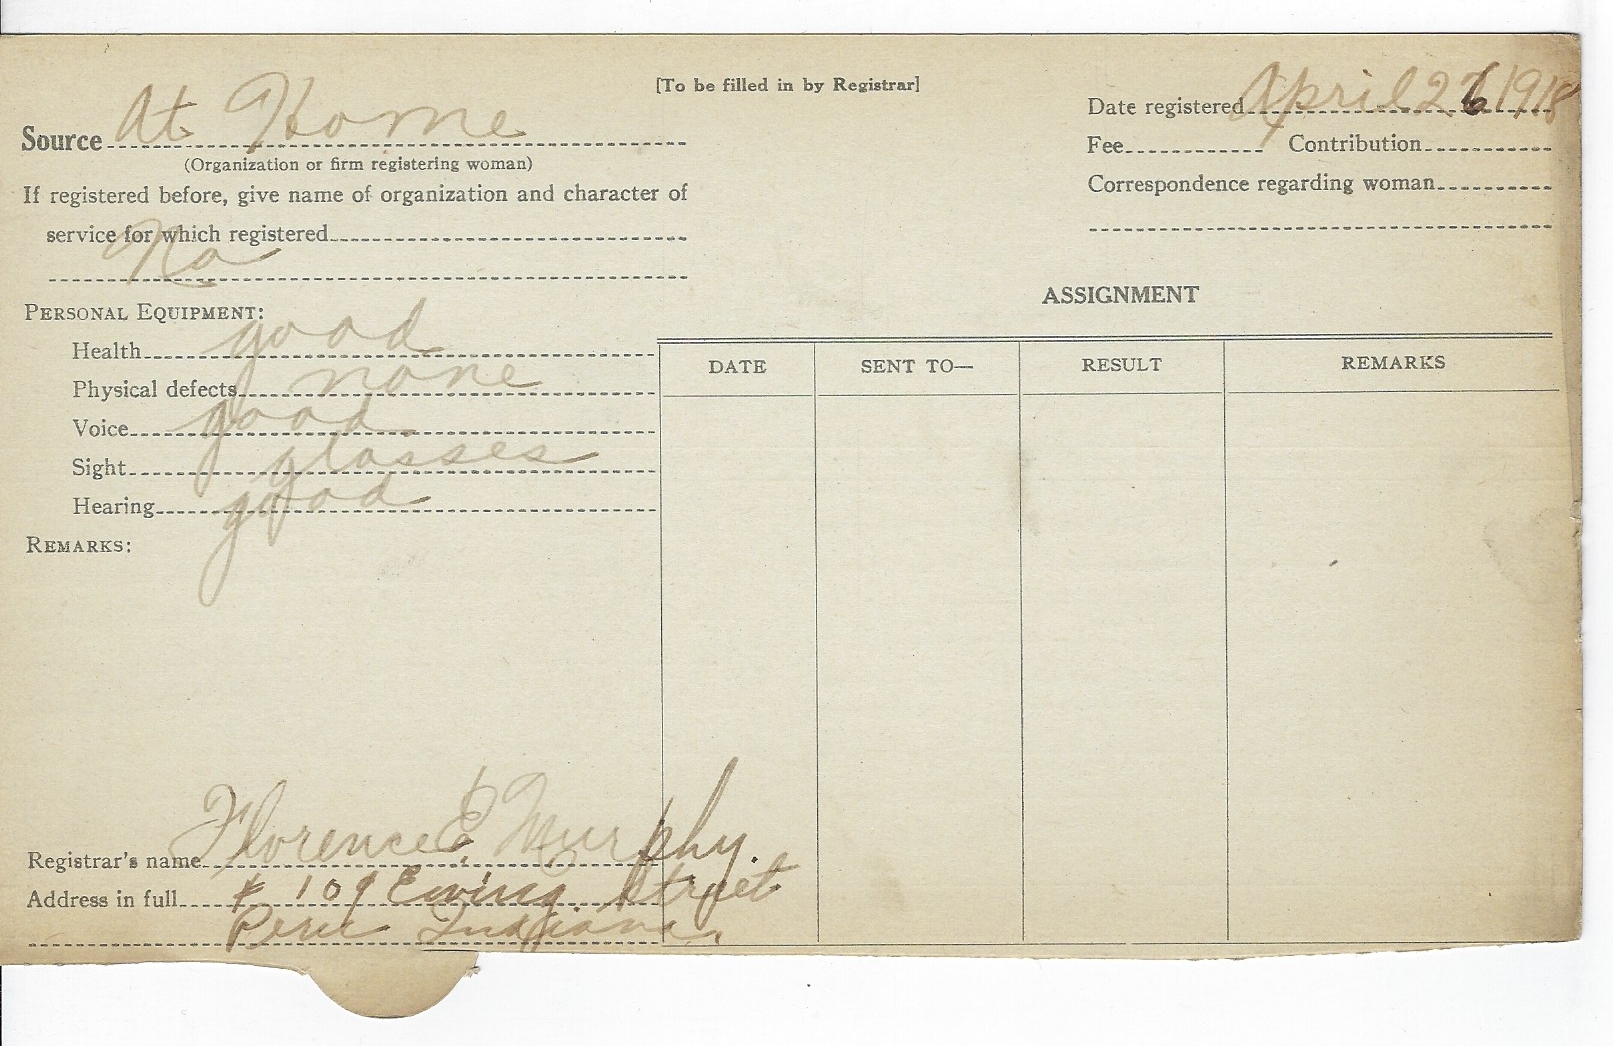 [To be filled in by Registrar]
Source At Home
(Organization or firm registering woman)
If registered before, give name of organization and character of
service for which registered
No
Date registered April 26 1918
Fee Contribution
Correspondence regarding woman
PERSONAL EQUIPMENT:
Health good
Physical defects none
Voice good
Sight glasses
Hearing good
REMARKS:
ASSIGNMENT
DATE SENT TO— RESULT REMARKS
Registrar's name Florence E. Murphy.
Address in full # 109 Ewing Street
Peru Indiana.